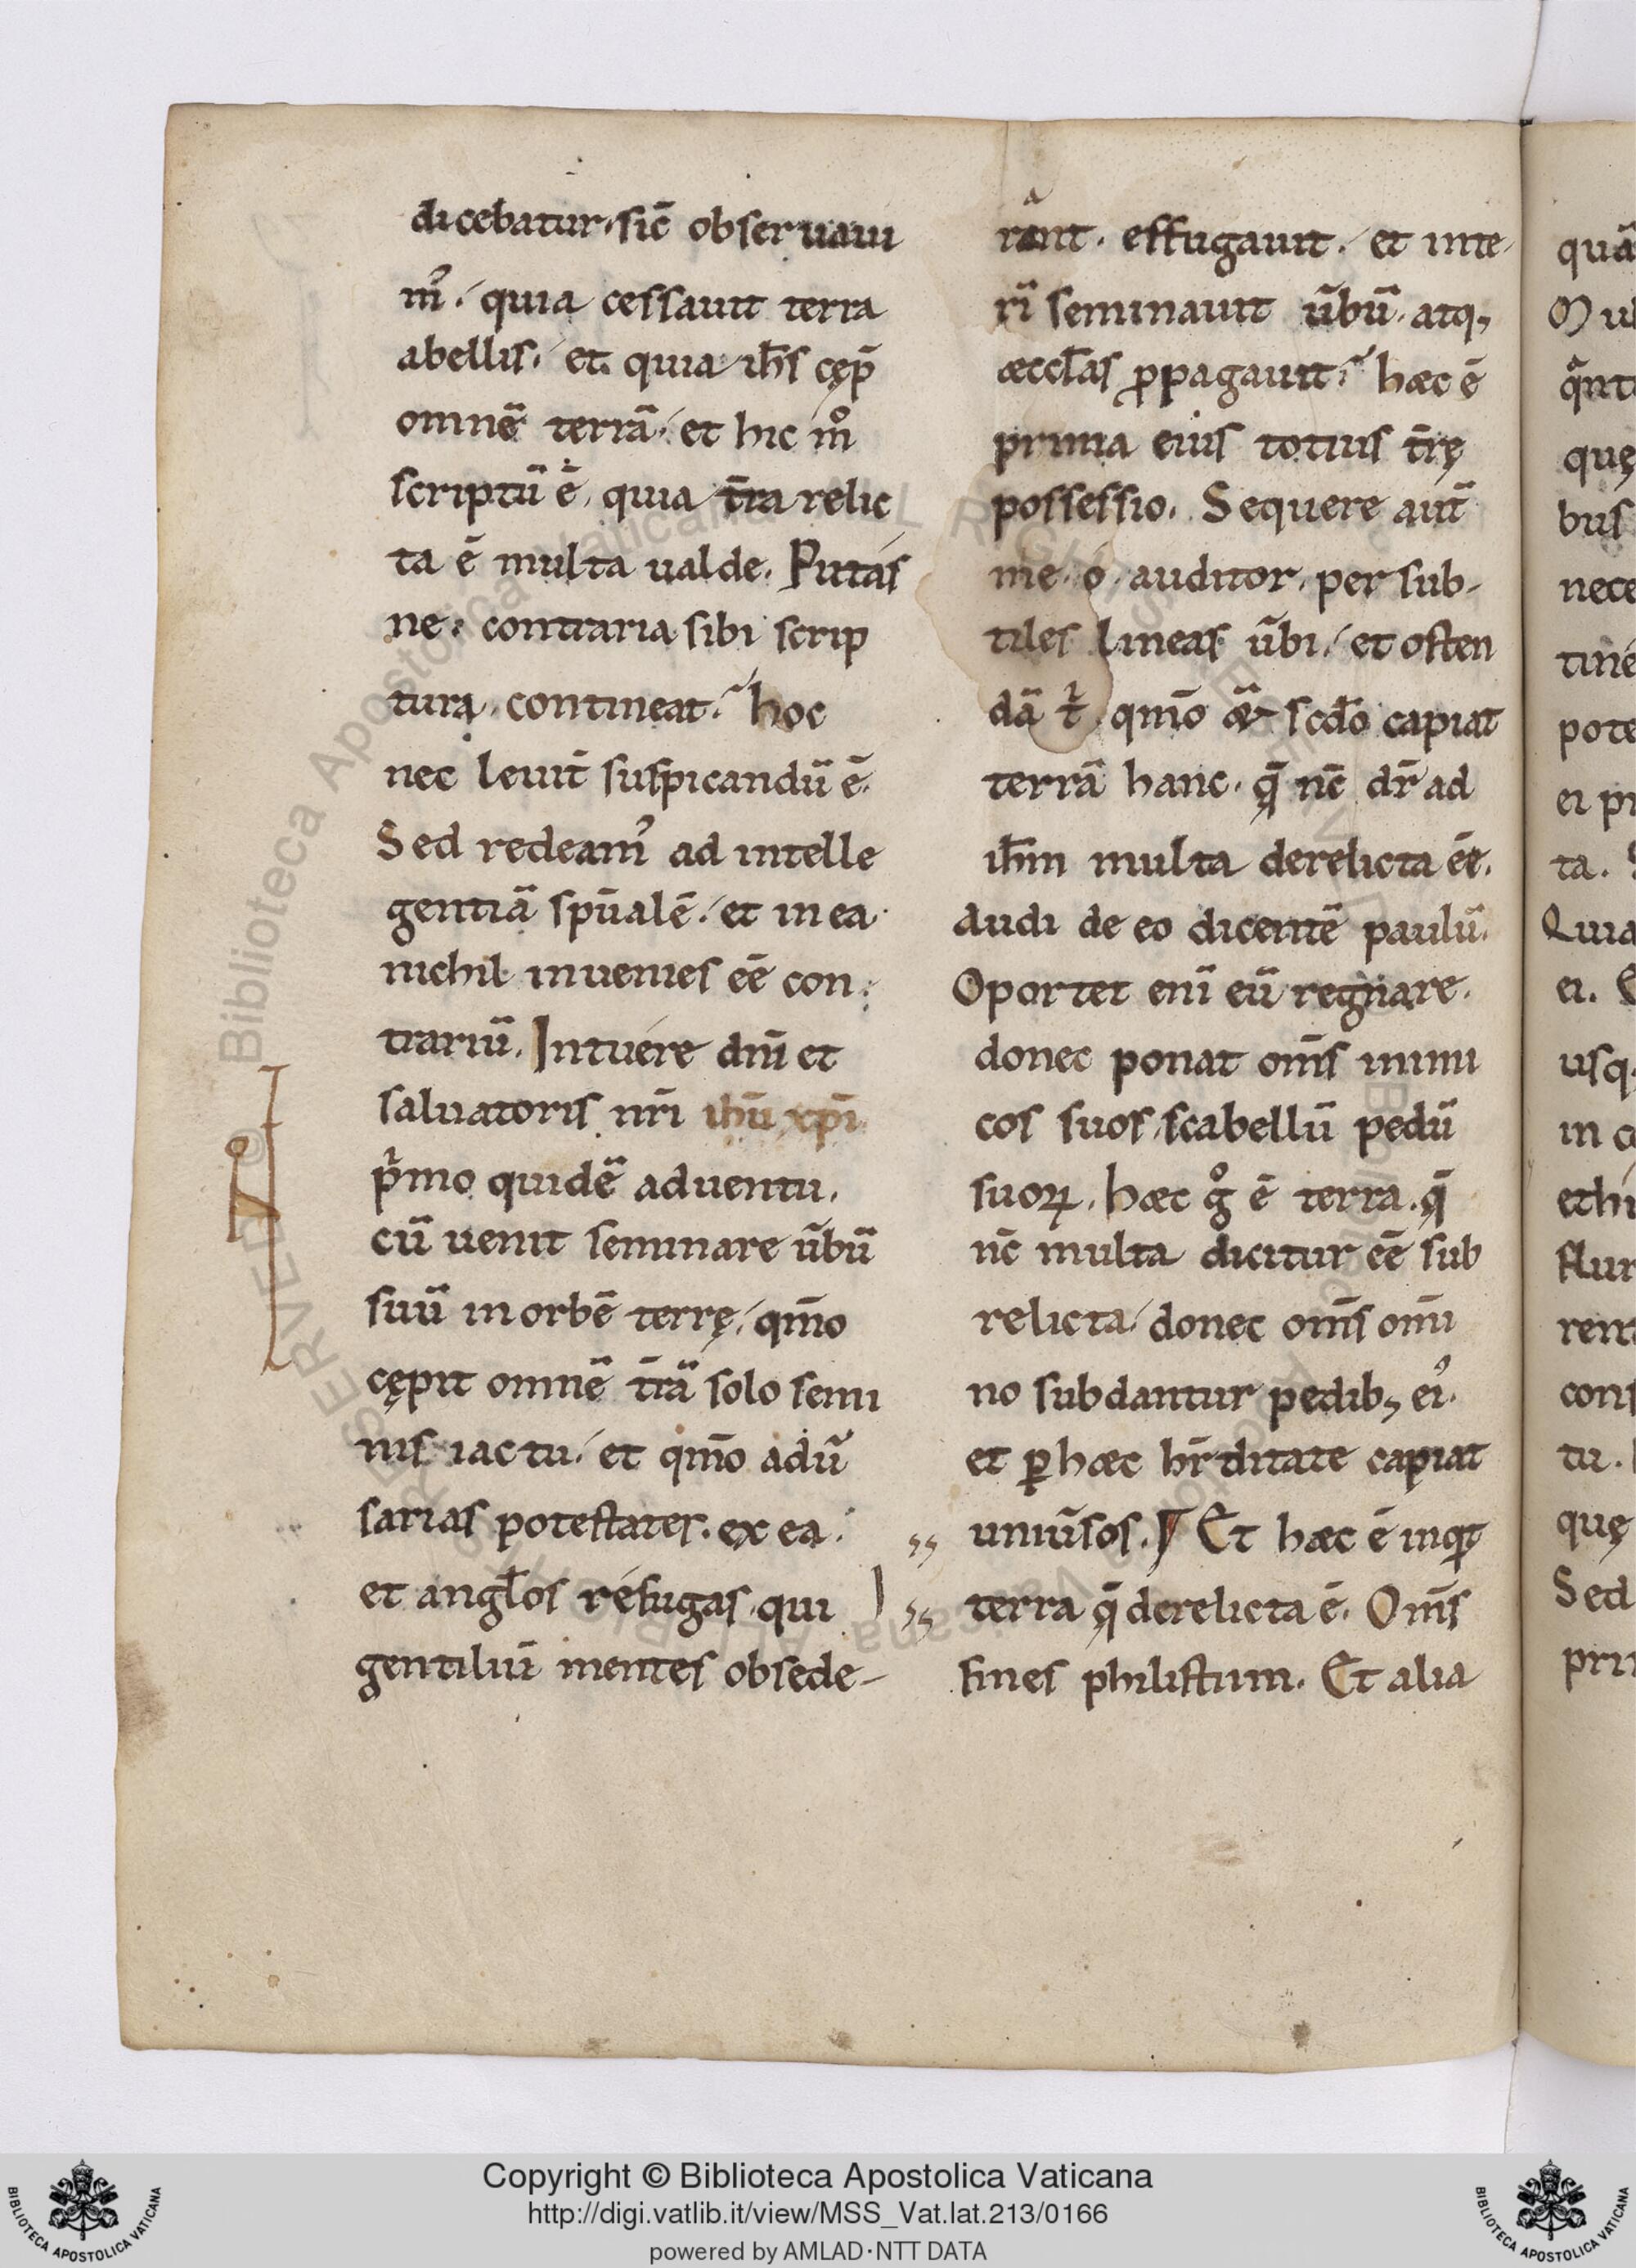 dicebatur. sic̄ obseruaui
m᾽. quia cessauit terra
abellis. et quia ih̄s cęp̄
omnē terrā. et hic m̊
scriptū ē. quia t̄ra relic
ta ē multa ualde. Putas
ne. contraria sibi scrip
tura contineat. hoc
nec leuit̄ suspicandū ē.
Sed redeam᾽ ad intelle
gentiā sp̄ualē. et in ea
nichil inuenies eē con
trariū. Intuere dn̄i et
saluatoris nr̄i ih̄u xp̄i
pͥmo quidē aduentu.
cū uenit seminare ūbū
suū in orbē terrę. qm̄o
cępit omnē t̄rā solo semi
nis iactu. et qm̄o adū
sarias potestates. ex ea
et angl̄os refugas. qui
gentiliū mentes obsede-
rant. effugauit. et inte
rī seminauit ūbū. atq,
æccl̄as ꝓpagauit. hæc ē
prima eius totius t̄rę
possessio. Sequere aut̄
me. o. auditor. per sub-
tiles lineas ūbi. et osten
dā tͥ. qm̄o scd̄o capiat
terrā hanc. q̄ nc̄ dr̄ ad
ih̄m multa derelicta eē.
Audi de eo dicentē paulū.
Oportet enī eū regnare.
donec ponat om̄s inimi
cos suos. scabellū pedū
suoꝝ. hæc g̊ ē terra. q̄
nc̄ multa dicitur eē sub
relicta. donec om̄s om̄i
no subdantur pedib, ei᾽.
et ꝑ hæc hr̄ditate capiat
uniūsos. ¶ Et hæc ē inqͥt
terra q̄ derelicta ē. Om̄s
fines philistiim. Et alia
quā
qn̄t
quę
bus
nece
tine
pote
ei pr
ta.
Quia
ei.
usq,
in c
ethi
flur
rem
cons
tu.
quę
Sed
pri
Copyright © Biblioteca Apostolica Vaticana
http://digi.vatlib.it/view/MSS_Vat.lat.213/0166
powered by AMLAD·NTT DATA
BIBLIOTECA APOSTOLICA VATICANA
BIBLIOTECA APOSTOLICA VATICANA